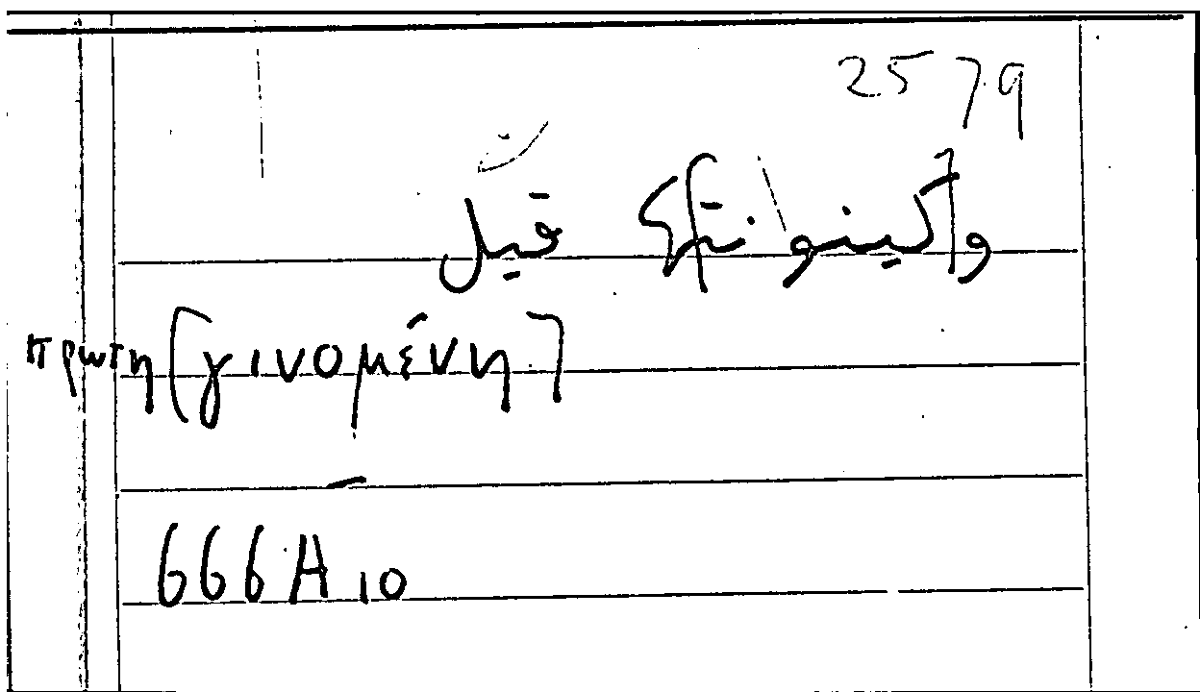 2579
وكينونتها قبل
πρωτη [γινομένη]
666A10